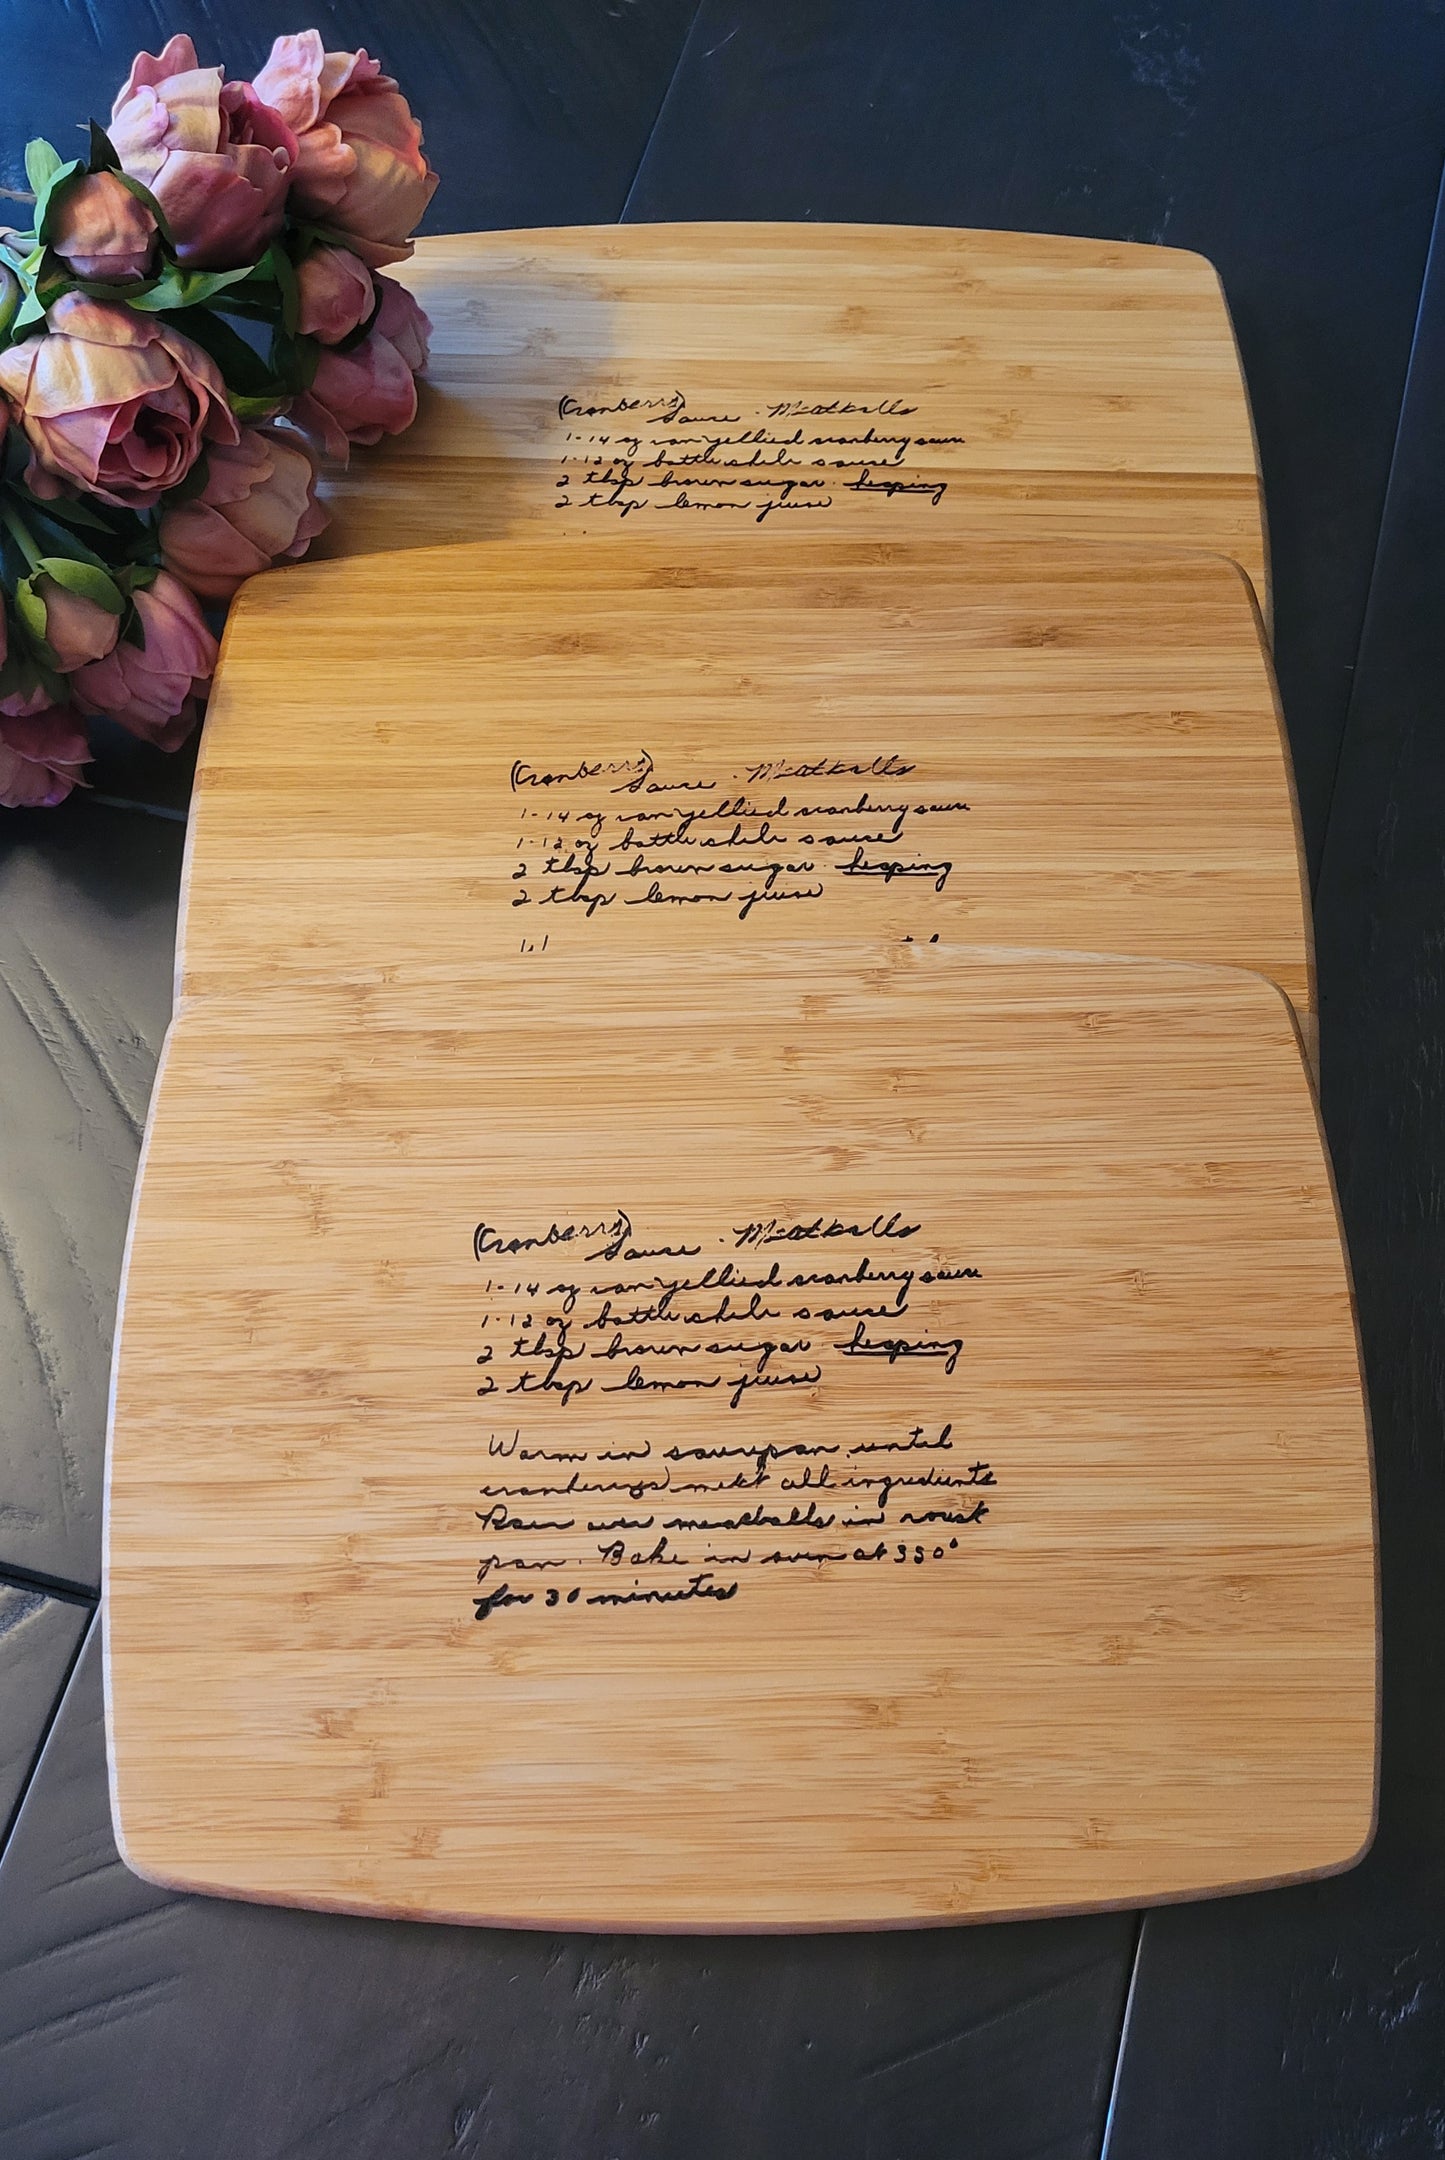 (Cranberry) Sauce · Meatballs
1-14 oz can jellied cranberry sauce
1-12 oz bottle chili sauce
2 tbsp brown sugar heaping
2 tbsp lemon juice
(Cranberry) Sauce · Meatballs
1-14 oz can jellied cranberry sauce
1-12 oz bottle chili sauce
2 tbsp brown sugar heaping
2 tbsp lemon juice
(Cranberry) Sauce · Meatballs
1-14 oz can jellied cranberry sauce
1-12 oz bottle chili sauce
2 tbsp brown sugar heaping
2 tbsp lemon juice
Warm in saucepan until
melt all ingredients
Pour over meatballs in roast
pan. Bake in oven at 350°
for 30 minutes